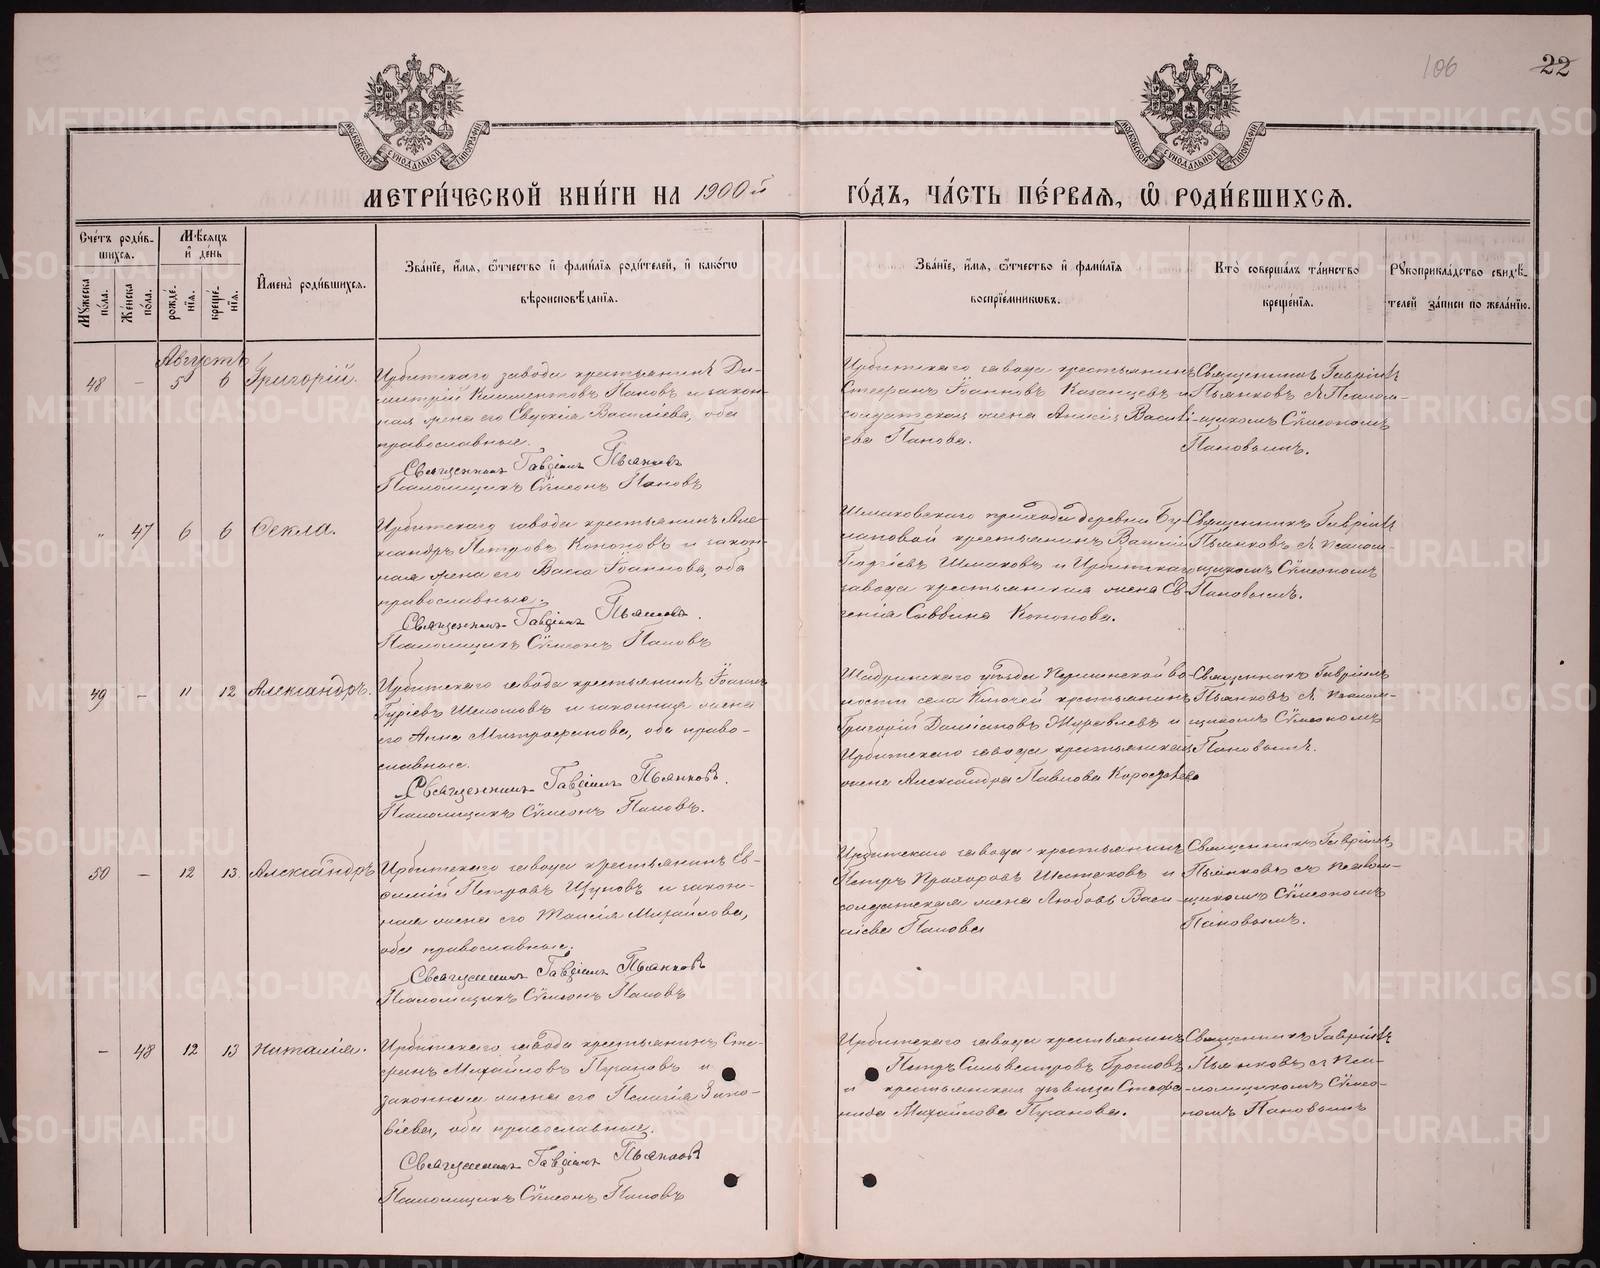 106 22
МОСКОВСКОЙ СѴНОДАЛЬНОЙ ТИПОГРАФІИ
МОСКОВСКОЙ СѴНОДАЛЬНОЙ ТИПОГРАФІИ
МЕТРИ́ЧЕСКОЙ КНИ́ГИ НА 1900й ГО́ДЪ, ЧА́СТЬ ПЕ́РВАѦ, Ѡ҆ РОДИ́ВШИХСѦ.
Сче́тъ роди́в-
шихсѧ.
Му́жеска по́ла.
Же́нска по́ла.
Мѣ́сѧцъ
и҆ де́нь
рожде́-
нїѧ.
креще́-
нїѧ.
И҆мена̀ роди́вшихсѧ.
Зва́нїе, и҆́мѧ, ѻ҆́тчество и҆ фами́лїѧ роди́телей, и҆ како́гѡ
вѣроисповѣ́данїѧ.
Зва́нїе, и҆́мѧ, ѻ҆́тчество и҆ фами́лїѧ
воспрїе́мникѡвъ.
Кто̀ соверша́лъ та́инство
креще́нїѧ.
Рꙋкоприкла́дство свидѣ́-
телей за́писи по жела́нїю.
Августъ
48 - 5 6 Григорій.
Ирбитскаго завода крестьянинъ Ди-
митрій Климентовъ Пановъ и закон-
ная жена его Евдокія Васильева, оба
православные.
Священникъ Гавріилъ Пьянковъ
Псаломщикъ Сѵмеонъ Пановъ
Ирбитскаго завода крестьянинъ
Стефанъ Іоанновъ Казанцевъ и
солдатская жена Васильева
Панова.
Священникъ Гавріилъ
Пьянковъ съ Псалом-
щикомъ Сѵмеономъ
Пановымъ.
" 47 6 6 Ѳекла.
Ирбитскаго завода крестьянинъ Але-
ксандръ Петровъ Кононовъ и закон-
ная жена его Васса Іоаннова, оба
православные.
Священникъ Гавріилъ Пьянковъ.
Псаломщикъ Сѵмеонъ Пановъ
Шмаковскаго прихода деревни Бу-
лановой крестьянинъ Василій
Георгіевъ Шмаковъ и Ирбитскаго
завода крестьянская жена Ев-
генія Саввина Кононова.
Священникъ Гавріилъ
Пьянковъ съ псалом-
щикомъ Сѵмеономъ
Пановымъ.
49 - 11 12 Александръ.
Ирбитскаго завода крестьянинъ Іоаннъ
Гуріевъ и законная жена
его Анна Митрофанова, оба право-
славные.
Священникъ Гавріилъ Пьянковъ.
Псаломщикъ Сѵмеонъ Пановъ.
Шадринскаго уѣзда во-
лости села Ключей крестьянинъ
Григорій Даміановъ Журавлевъ и
Ирбитскаго завода крестьянская
жена Александра Павлова
Священникъ Гавріилъ
Пьянковъ съ псалом-
щикомъ Сѵмеономъ
Пановымъ.
50 - 12 13 Александръ
Ирбитскаго завода крестьянинъ Ев-
фимій Петровъ Щуповъ и закон-
ная жена его Таисія Михайлова,
оба православные.
Священникъ Гавріилъ Пьянковъ
Псаломщикъ Сѵмеонъ Пановъ
Ирбитскаго завода крестьянинъ
Петръ Прохоровъ и
солдатская жена Любовь Васи-
ліева Панова
Священникъ Гавріилъ
Пьянковъ съ псалом-
щикомъ Сѵмеономъ
Пановымъ.
- 48 12 13 Наталія.
Ирбитскаго завода крестьянинъ Сте-
фанъ Михайловъ Пугановъ и
законная жена его Пелагія Зино-
віева, оба православные.
Священникъ Гавріилъ Пьянковъ
Псаломщикъ Сѵмеонъ Пановъ
Ирбитскаго завода крестьянинъ
Петръ Сильвестровъ
и крестьянская дѣвица Стефа-
нида Михайлова Пуганова.
Священникъ Гавріилъ
Пьянковъ съ пса-
ломщикомъ Сѵмео-
номъ Пановымъ
METRIKI.GASO-URAL.RU